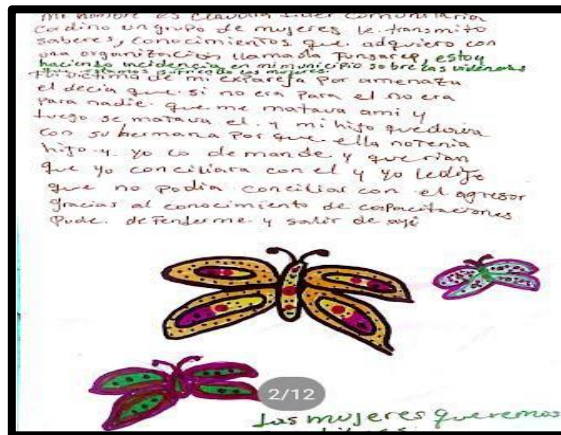 mi nombre es claudia lider comunitaria
cordino un grupo de mujeres le transmito
saberes, conocimientos que adquiero con
una organización llamada Fungarep, estoy
haciendo incidencia en mi municipio sobre las violencias
que estamos sufriendo las mujeres.
Fui victima de mi expareja por amenaza
el decia que si no era para el no era
para nadie. que me matava ami y
luego se matava el. y mi hijo quedaria
con su hermana por que ella no tenia
hijo y yo lo demande y querian
que yo conciliara con el y yo le dije
que no podia conciliar con el agresor
gracias al conocimiento de capacitaciones
Pude. defenderme y salir de ayi
2/12
Las mujeres queremos